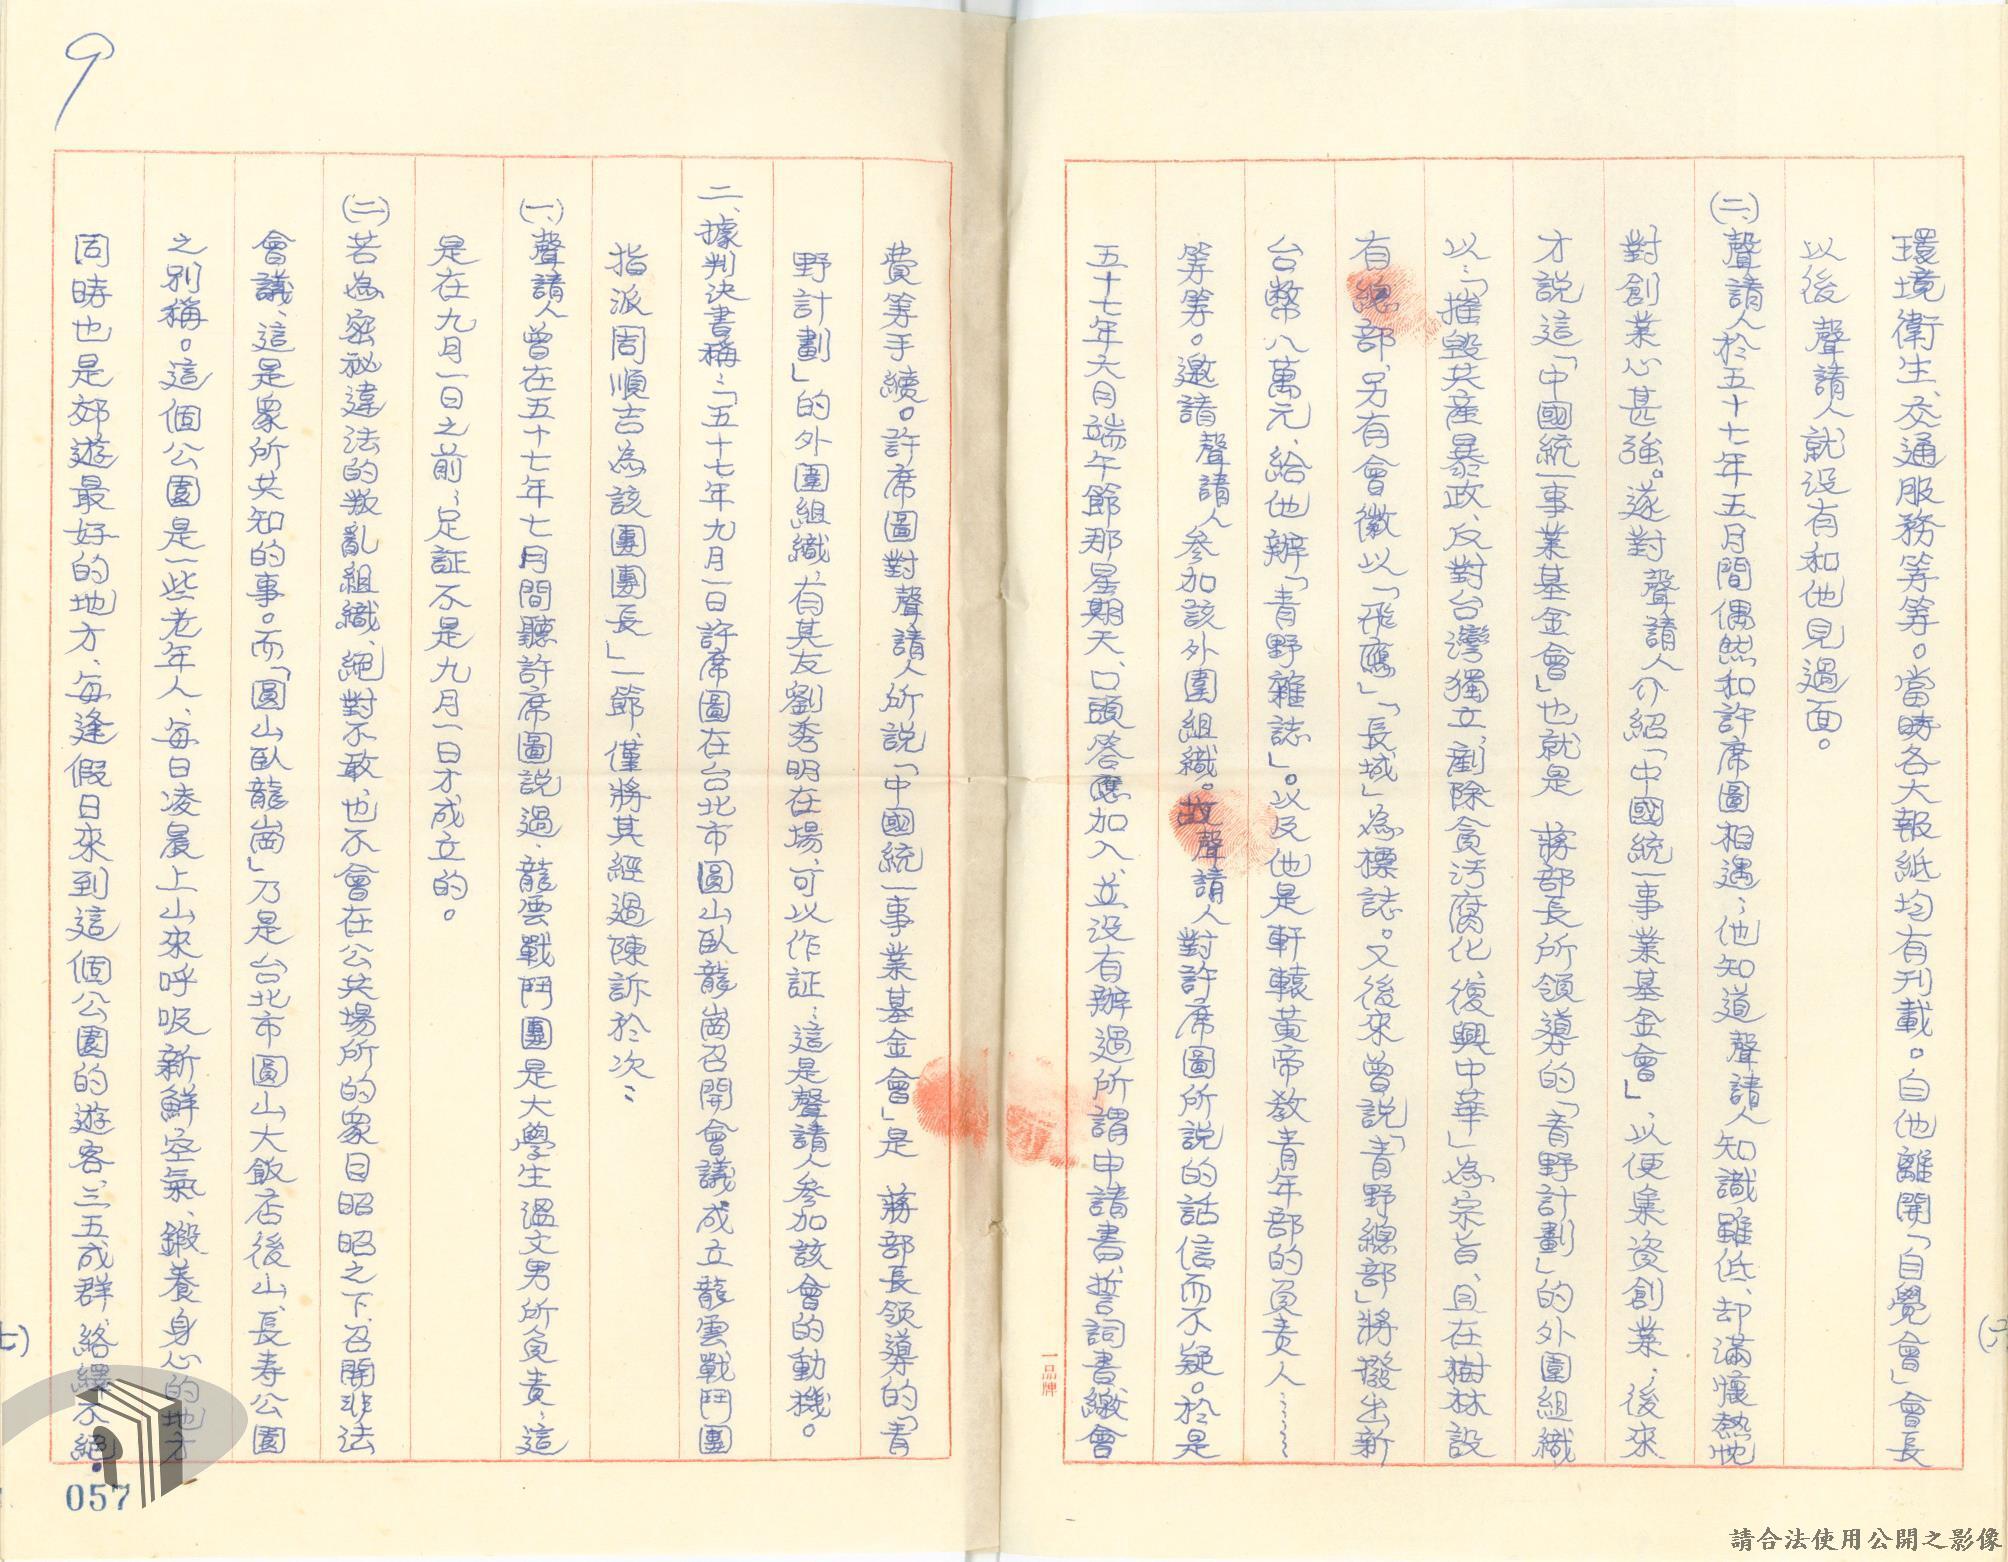 環境衛生、交通服務等等。當時各大報紙均有刊載。自他離開「自覺會」會長
以後聲請人就沒有和他見過面。
(二)、聲請人於五十七年五月間偶然和許席圖相遇；他知道聲請人知識雖低、却滿懷熱忱
對創業心甚強。遂對聲請人介紹「中國統一事業基金會」、以便集資創業；後來
才說這「中國統一事業基金會」也就是 蔣部長所領導的「青野計劃」的外圍組織
以：「摧毀共產暴政、反對台灣獨立、剷除貪污腐化、復興中華」為宗旨、且在樹林設
有總部、另有會徽以「飛鷹」「長城」為標誌。又後來曾說「青野總部」將撥出新
台幣八萬元、給他辦「青野雜誌」。以及他是軒轅黃帝教青年部的負責人……
等等。邀請聲請人參加該外圍組織。故聲請人對許席圖所說的話信而不疑。於是
五十七年六月端午節那星期天、口頭答應加入、並沒有辦過所謂申請書、誓詞書繳會
(六)
一品牌
費等手續。許席圖對聲請人所說「中國統一事業基金會」是 蔣部長領導的「青
野計劃」的外圍組織、有其友劉秀明在場、可以作証；這是聲請人參加該會的動機。
二、據判決書稱：「五十七年九月一日許席圖在台北市圓山臥龍崗召開會議成立龍雲戰鬥團
指派周順吉為該團團長」一節、僅將其經過陳訴於次：
(一)、聲請人曾在五十七年七月間聽許席圖說過、龍雲戰鬥團是大學生溫文男所負責；這
是在九月一日之前；足証不是九月一日才成立的。
(二)若為密祕違法的叛亂組織、絕對不敢、也不會在公共場所的眾目昭昭之下、召開非法
會議、這是眾所共知的事。而「圓山臥龍崗」乃是台北市圓山大飯店後山、長寿公園
之別稱。這個公園是一些老年人、每日凌晨上山來呼吸新鮮空氣、鍛養身心的地方
同時也是郊遊最好的地方、每逢假日來到這個公園的遊客、三五成群、絡繹不絕。
七)
9
057
請合法使用公開之影像